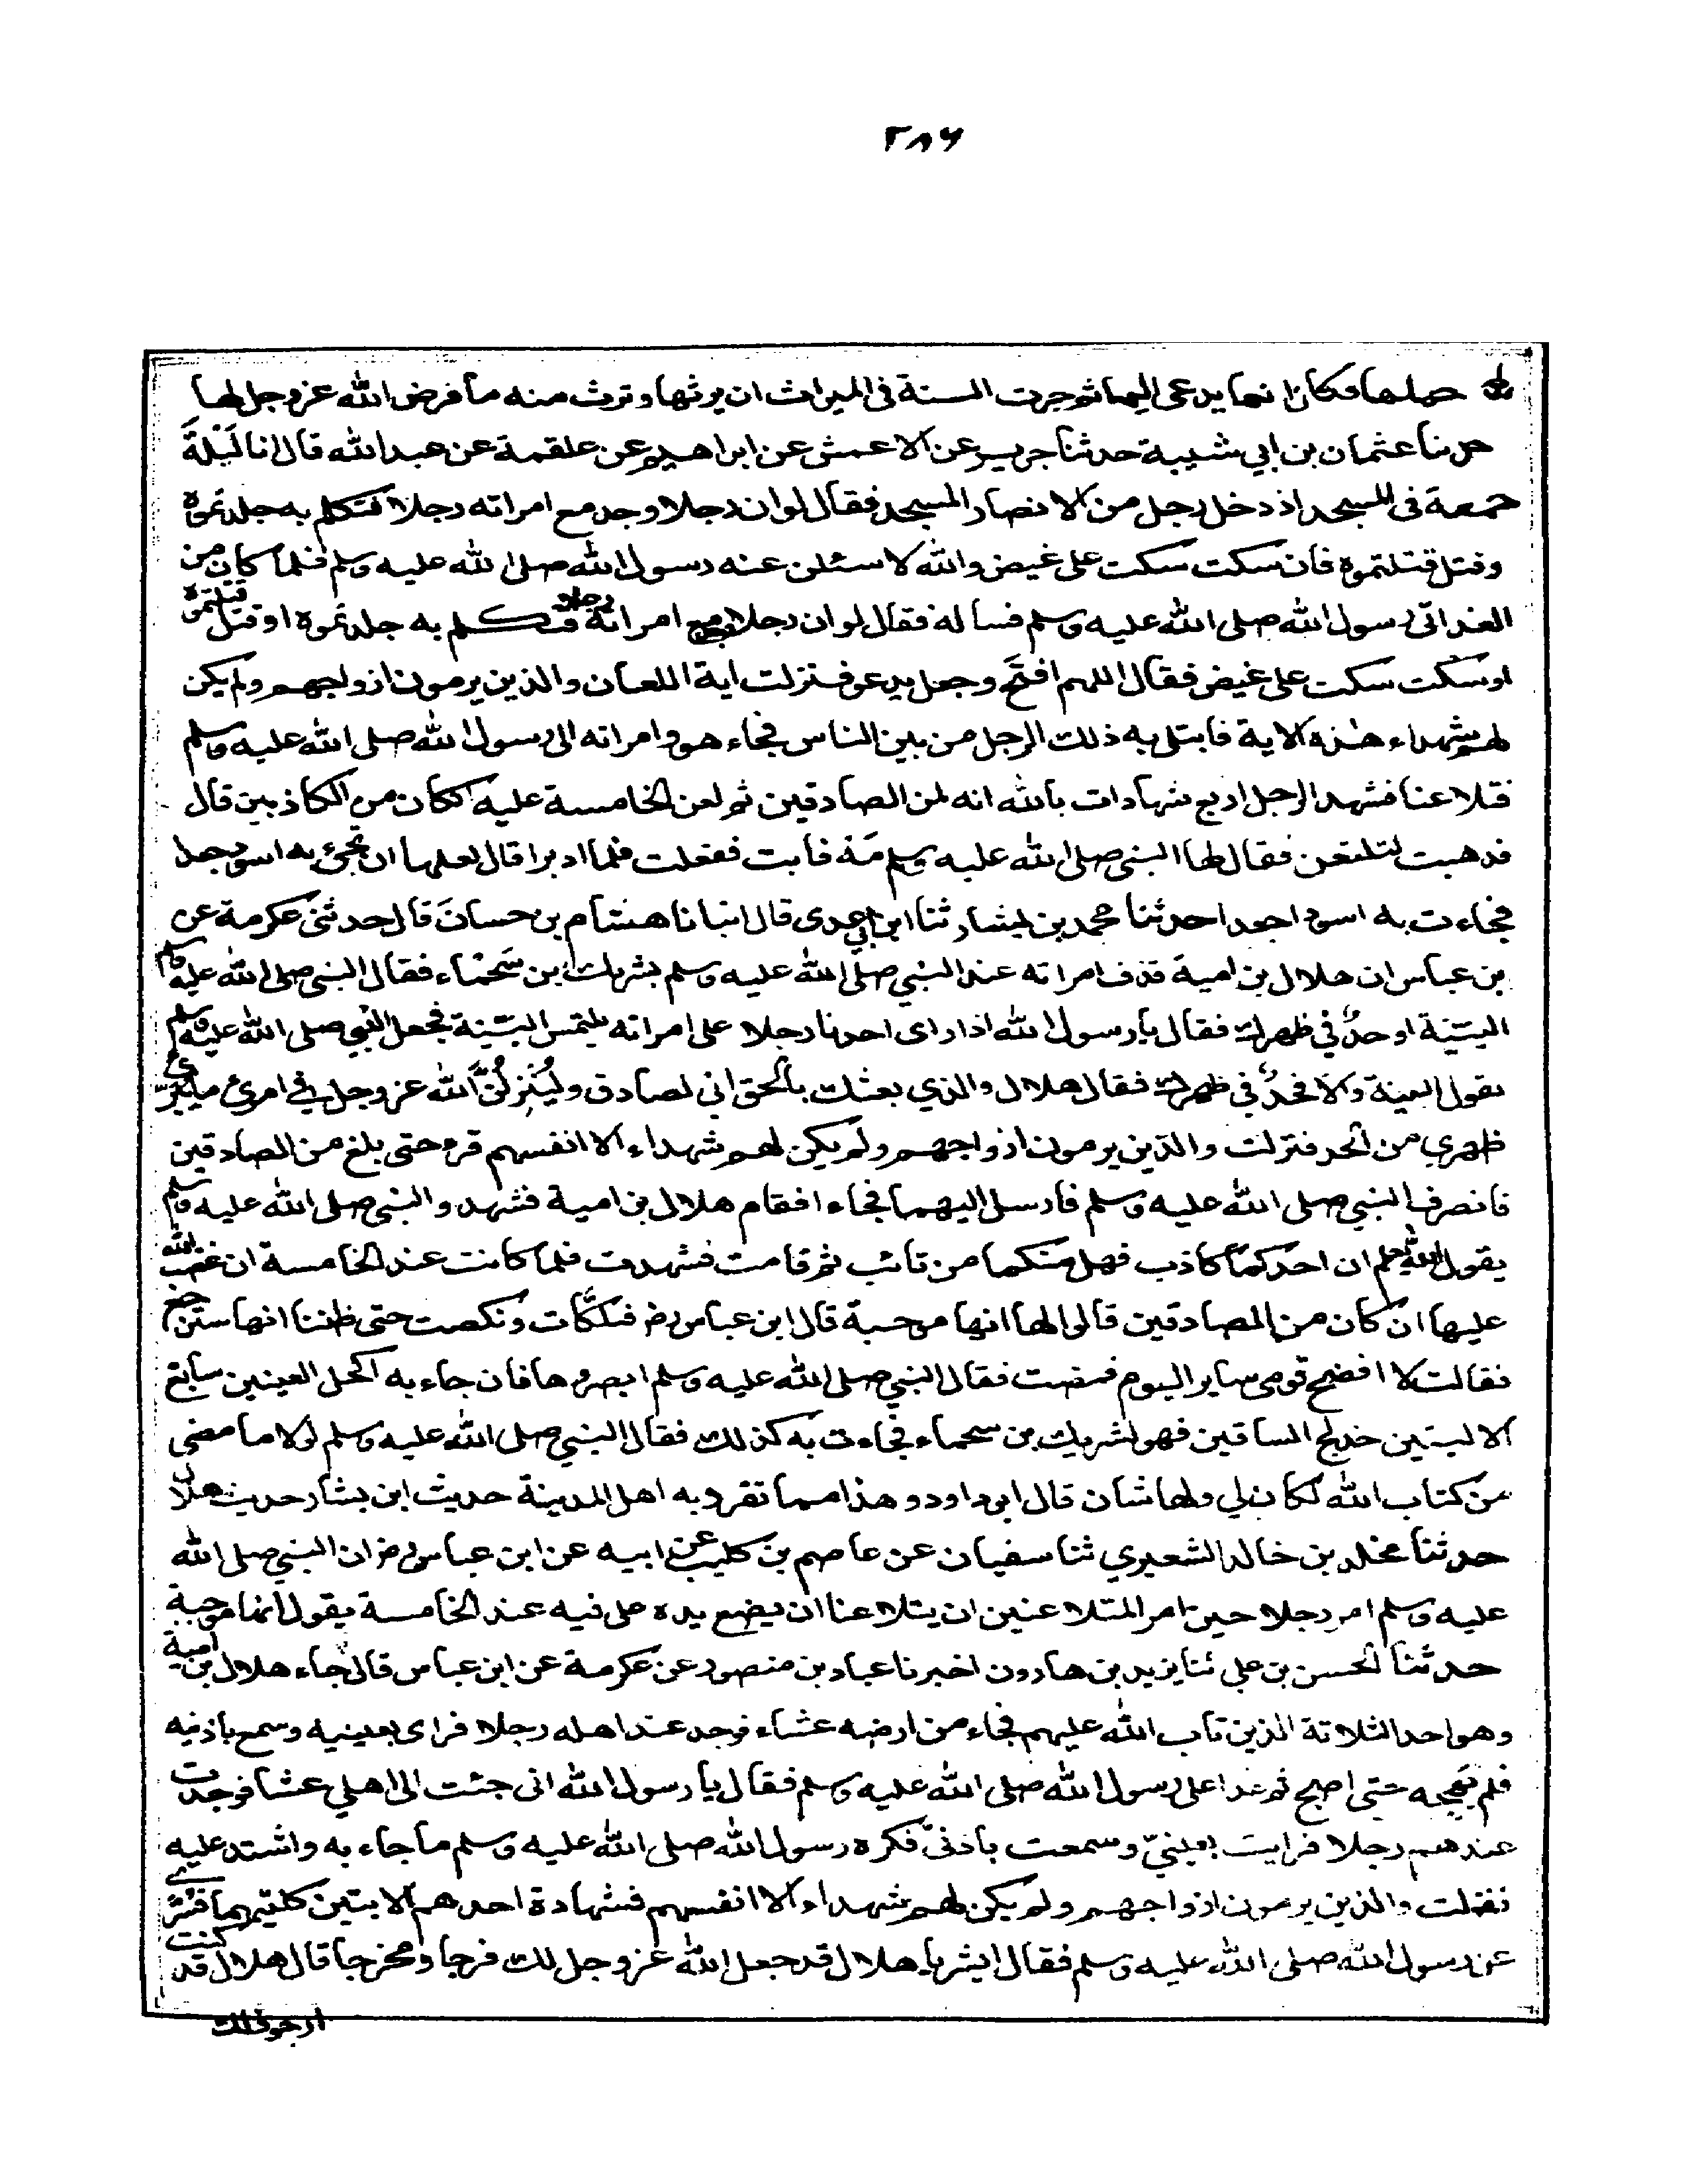 ٢٨٦
حملها فكان انما يدعى اليها ثم جرت السنة فى الميراث ان يرثها وترث منه ما فرض الله عز وجل لها
حدثنا عثمان بن ابي شيبة حدثنا جرير عن الاعمش عن ابراهيم عن علقمة عن عبد الله قال انا لَيْلَةَ
جمعة فى المسجد اذ دخل رجل من الانصار المسجد فقال لو ان رجلا وجد مع امراته رجلا فتكلم به جلدتموه
وقتل قتلتموه فان سكت سكت على غيض والله لاسئلن عنه رسول الله صلى الله عليه وسلم فلما كان من
الغد اتى رسول الله صلى الله عليه وسلم فساله فقال لو ان رجلا وجد مع امراته رجلا فتكلم به جلدتموه او قتل قتلتموه
او سكت سكت على غيض فقال اللهم افتح وجعل يدعو فنزلت اية اللعان والذين يرمون ازواجهم ولم يكن
لهم شهداء هذه الاية فابتلى به ذلك الرجل من بين الناس فجاء هو وامراته الى رسول الله صلى الله عليه وسلم
فتلاعنا فشهد الرجل اربع شهادات بالله انه لمن الصادقين ثم لعن الخامسة عليه ان كان من الكاذبين قال
فذهبت لتلتعن فقال لها النبى صلى الله عليه وسلم مَهْ فابت ففعلت فلما ادبرا قال لعلها ان تجئ به اسود جعدا
فجاءت به اسود اجعدا حدثنا محمد بن بشار ثنا ابن ابي عدى قال انبانا هشام بن حسان قال حدثنى عكرمة عن
بن عباس ان هلال بن امية قذف امراته عند النبي صلى الله عليه وسلم بشريك بن سَحْمَاء فقال النبى صلى الله عليه وسلم
البيّنة او حدٌّ في ظهرك فقال يا رسول الله اذا راى احدنا رجلا على امراته يلتمس البيّنة فجعل النبي صلى الله عليه وسلم
يقول البينة والا فحدٌّ في ظهرك فقال هلال والذي بعثك بالحق اني لصادق وليُنزلنّ الله عز وجل في امرئ ما يبرّئ
ظهري من الحد فنزلت والذين يرمون ازواجهم ولم يكن لهم شهداء الا انفسهم قرء حتى بلغ من الصادقين
فانصرف النبي صلى الله عليه وسلم فارسل اليهما فجاء افقام هلال بن امية فشهد والنبى صلى الله عليه وسلم
يقول الله يعلم ان احدكما كاذب فهل منكما من تائب ثم قامت فشهدت فلما كانت عند الخامسة ان غضب الله
عليها ان كان من الصادقين قالوا لها انها موجبة قال ابن عباس رض فتلكّات ونكصت حتى ظننا انها سترجع
فقالت لا افضح قومى ساير اليوم فمضت فقال النبي صلى الله عليه وسلم ابصروها فان جاءت به اكحل العينين سابغ
الاليتين خدلج الساقين فهو لشريك بن سحماء فجاءت به كذلك فقال النبي صلى الله عليه وسلم لولا ما مضى
من كتاب الله لكان لي ولها شان قال ابو داود وهذا مما تفرد به اهل المدينة حديث ابن بشار حديث هلال
حدثنا مخلد بن خالد الشعيري ثنا سفيان عن عاصم بن كليب عن ابيه عن ابن عباس رض ان النبي صلى الله
عليه وسلم امر رجلا حين امر المتلاعنين ان يتلاعنا ان يضع يده على فيه عند الخامسة يقول انها موجبة
حدثنا الحسن بن علي ثنا يزيد بن هارون اخبرنا عباد بن منصور عن عكرمة عن ابن عباس قال جاء هلال بن امية
وهو احد الثلاثة الذين تاب الله عليهم فجاء من ارضه عشاء فوجد عند اهله رجلا فراى بعينيه وسمع باذنيه
فلم يهجه حتى اصبح ثم غدا على رسول الله صلى الله عليه وسلم فقال يا رسول الله انى جئت الى اهلي عشا فوجدت
عندهم رجلا فرايت بعينيّ وسمعت باذنيّ فكره رسول الله صلى الله عليه وسلم ما جاء به واشتد عليه
فنزلت والذين يرمون ازواجهم ولم يكن لهم شهداء الا انفسهم فشهادة احدهم الايتين كلتيهما فسُرّي
عن رسول الله صلى الله عليه وسلم فقال ابشر يا هلال قد جعل الله عز وجل لك فرجا ومخرجا قال هلال قد كنت
ارجو ذلك